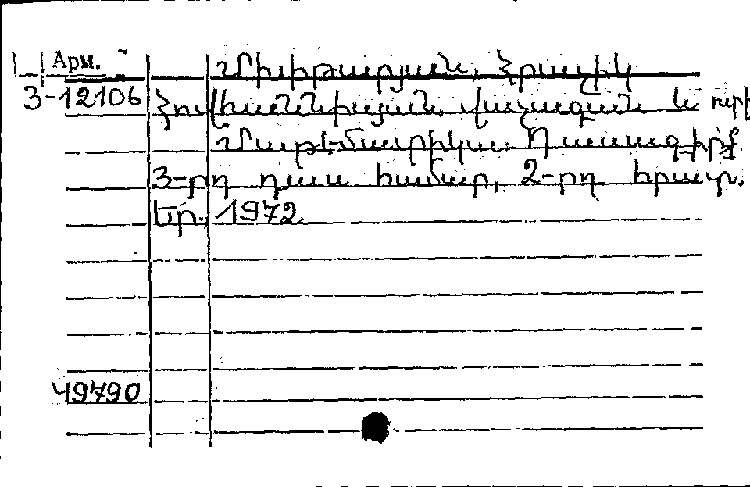 Арм.
Մխիթարյան, Հրաչիկ
3-12106 Հովհաննիսյան, Վաչագան և ուրիշ
Մաթեմատիկա. Դասագիրք
3-րդ դաս. համար, 2-րդ հրատ.
Եր., 1972.
49790